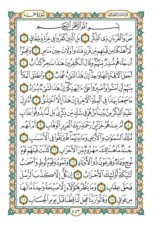 بسم الله الرحمن الرحيم
ص والقرآن ذي الذكر بل الذين كفروا في عزة وشقاق
كم أهلكنا من قبلهم من قرن فنادوا ولات حين مناص
وعجبوا أن جاءهم منذر منهم وقال الكافرون هذا ساحر كذاب
أجعل الآلهة إلها واحدا إن هذا لشيء عجاب وانطلق الملأ
منهم أن امشوا واصبروا على آلهتكم إن هذا لشيء يراد
ما سمعنا بهذا في الملة الآخرة إن هذا إلا اختلاق أءنزل
عليه الذكر من بيننا بل هم في شك من ذكري بل لما يذوقوا عذاب
أم عندهم خزائن رحمة ربك العزيز الوهاب أم لهم ملك
السماوات والأرض وما بينهما فليرتقوا في الأسباب جند ما
هنالك مهزوم من الأحزاب كذبت قبلهم قوم نوح وعاد
وفرعون ذو الأوتاد وثمود وقوم لوط وأصحاب
لئيكة أولئك الأحزاب إن كل إلا كذب الرسل
فحق عقاب وما ينظر هؤلاء إلا صيحة واحدة ما لها
من فواق وقالوا ربنا عجل لنا قطنا قبل يوم الحساب
٤٥٣